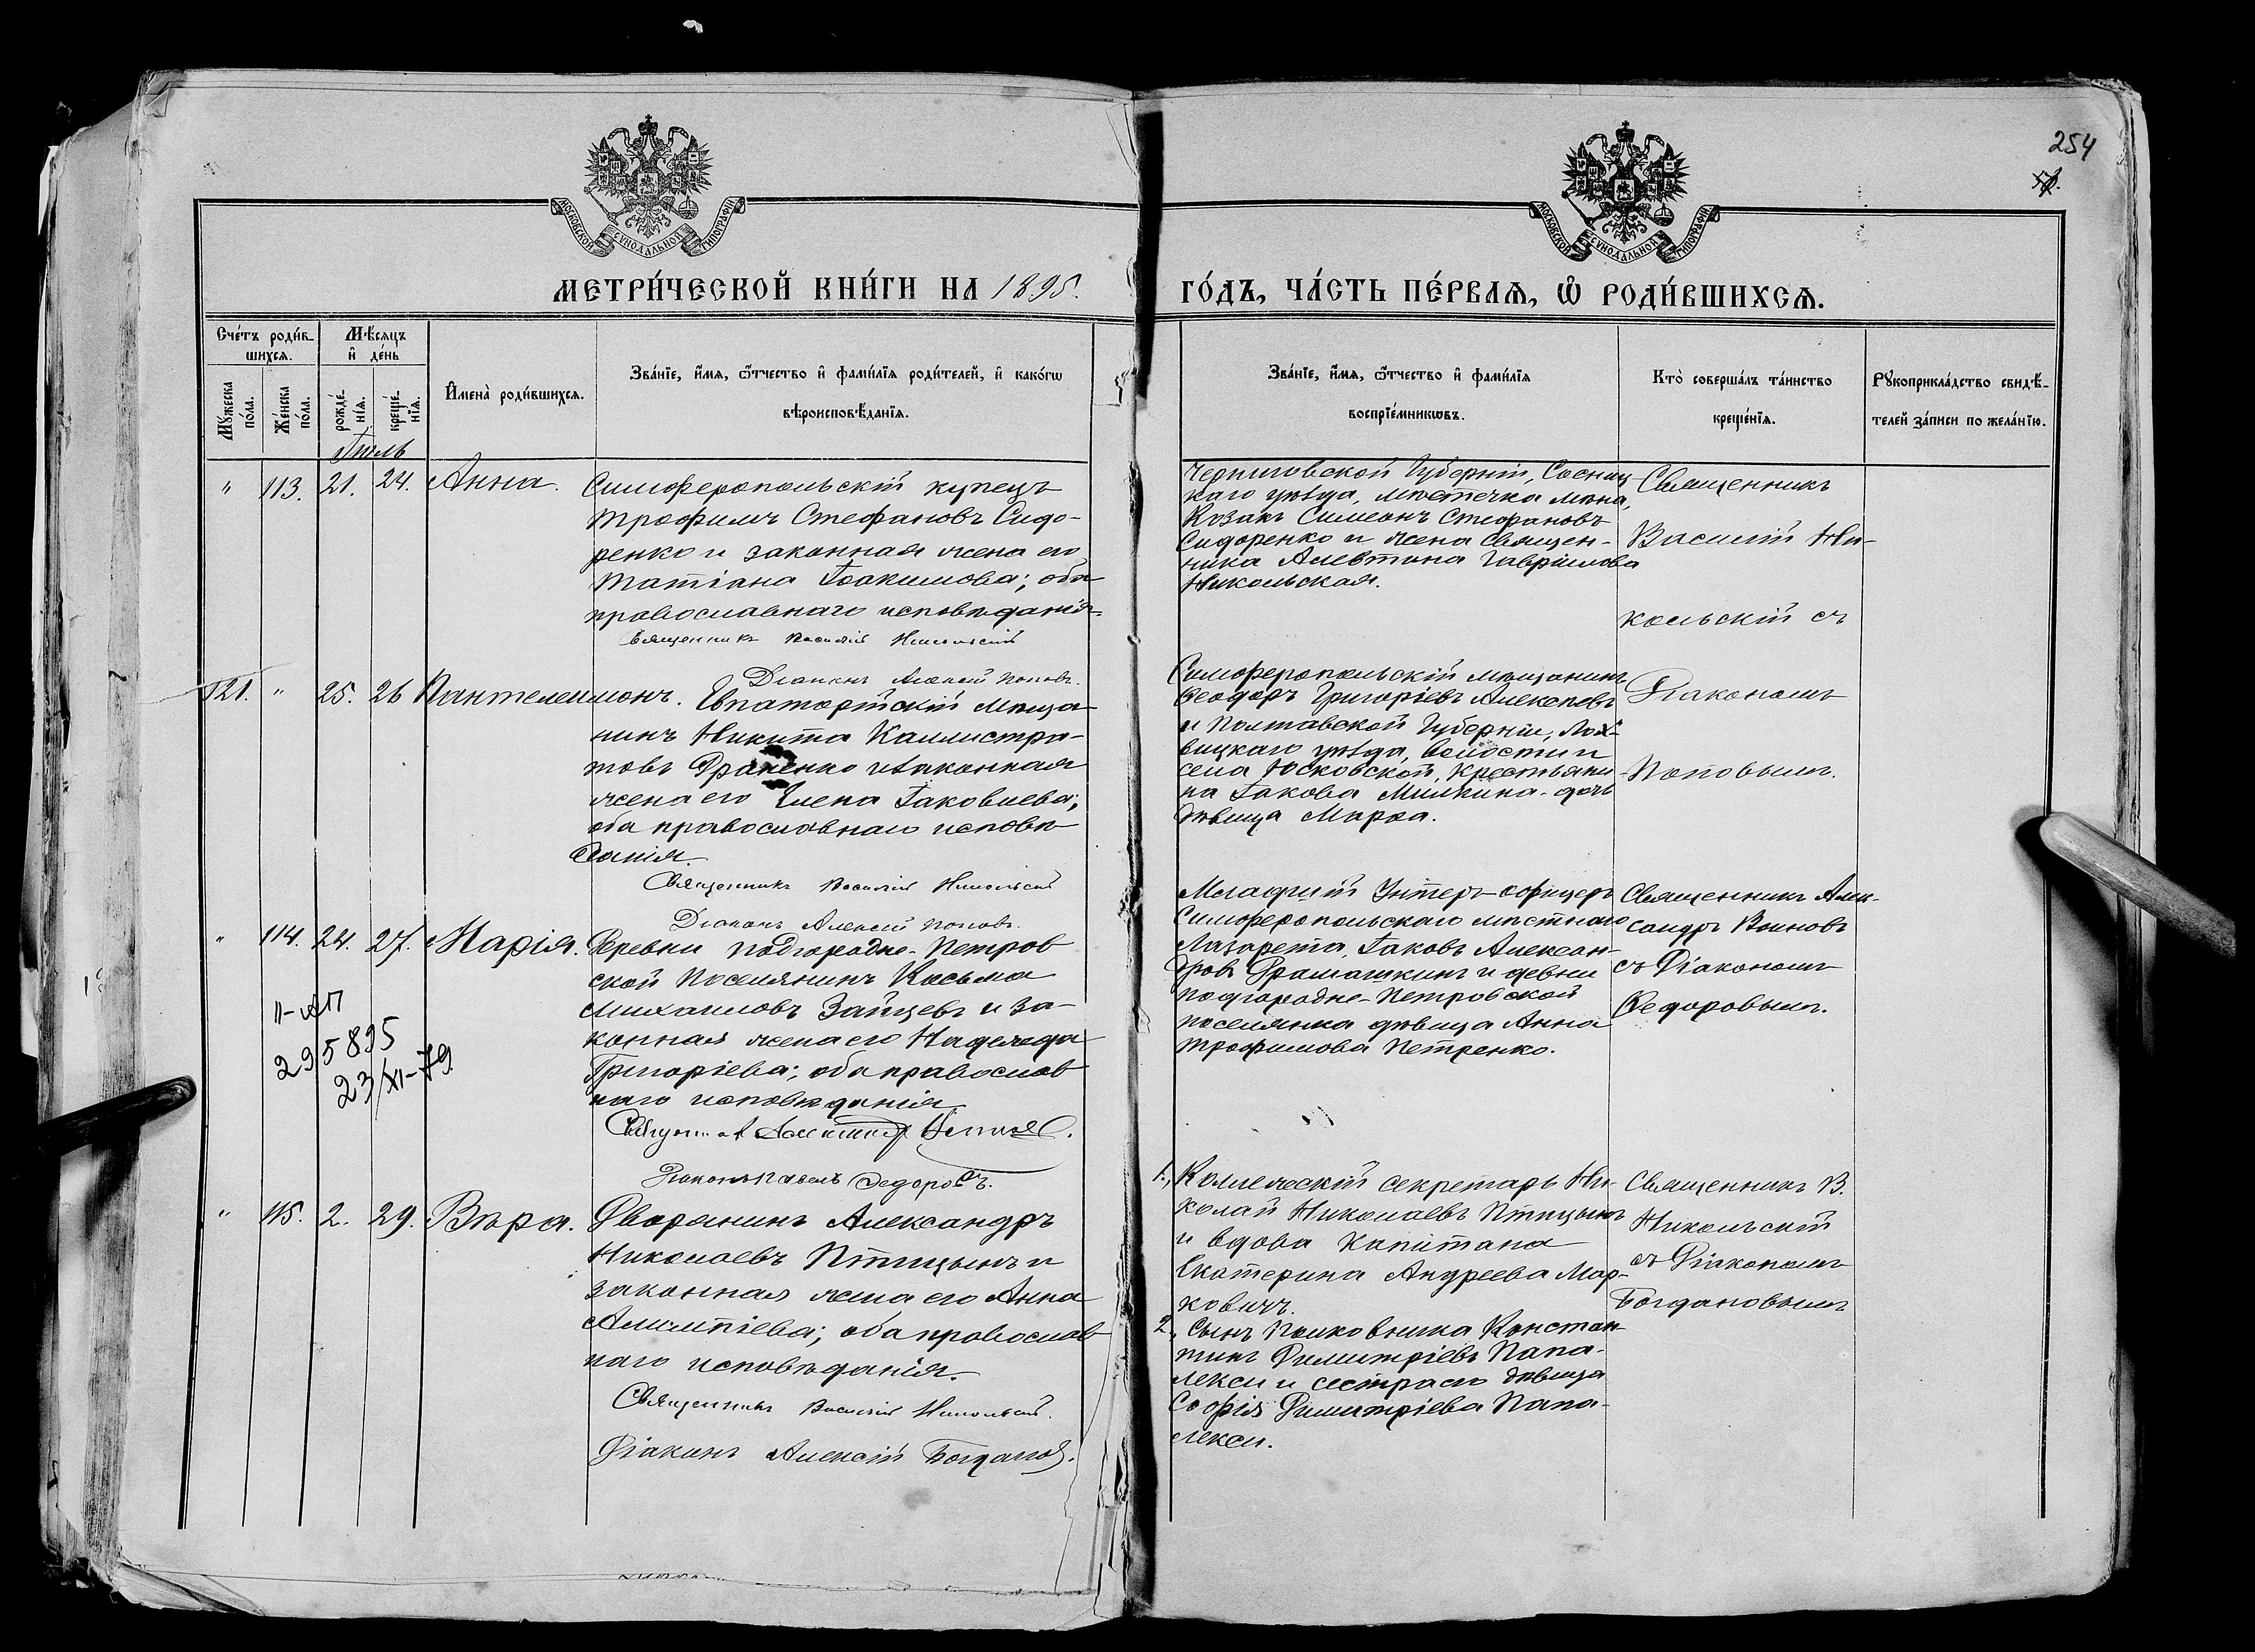 254
57.
МОСКОВСКОЙ СУНОДАЛЬНОЙ ТИПОГРАФІИ
МОСКОВСКОЙ СУНОДАЛЬНОЙ ТИПОГРАФІИ
МЕТРИ́ЧЕСКОЙ КНИ́ГИ НА 1895.
ГО́ДЪ, ЧА́СТЬ ПЕ́РВАЯ, Ѡ҆ РОДИ́ВШИХСѦ.
Сче́тъ роди́в-
шихсѧ.
Мꙋ́жеска по́ла.
Же́нска по́ла.
Мѣ́сѧцъ
и҆ де́нь
рожде́-
нїѧ.
креще́-
нїѧ.
И҆мена̀ роди́вшихсѧ.
Зва́нїе, и҆́мѧ, ѻ҆́тчество и҆ фами́лїѧ роди́телей, и҆ како́гѡ
вѣроисповѣ́данїѧ.
Зва́нїе, и҆́мѧ, ѻ҆́тчество и҆ фами́лїѧ
воспрїе́мникѡвъ.
Кто̀ соверша́лъ та́инство
креще́нїѧ.
Рꙋкоприкла́дство свидѣ́-
телей за́писи по жела́нїю.
Іюль
" 113. 21. 24. Анна.
Симферопольскій купецъ
Трофимъ Стефановъ Сидо-
ренко и законная жена его
Татіана Іоакимова; оба
православнаго исповѣданія.
Священникъ Василій Никольскій
Діаконъ Алексій Поповъ.
Черниговской Губерніи, Сосниц-
каго уѣзда, мѣстечка Мена,
Козакъ Симеонъ Стефановъ
Сидоренко и жена Священ-
ника Алевтина Гавриилова
Никольская.
Священникъ
Василій Ни-
кольскій съ
Діакономъ
Поповымъ.
121. " 25. 26 Пантелеимонъ.
Евпаторійскій мѣща-
нинъ Никита Каллистра-
товъ Драненко и законная
жена его Елена Іаковлева;
оба православнаго исповѣ-
данія.
Священникъ Василій Никольскій
Діаконъ Алексій Поповъ.
Симферопольскій мѣщанинъ
Феодоръ Григоріевъ Алексѣевъ
и Полтавской Губерніи, Лох-
вицкаго уѣзда, волости и
села Юсковской, крестьяни-
на Іакова Милкина-дочь
дѣвица Марѳа.
" 114. 24. 27. Марія.
11-АП
295895
23/XI-79
Деревни Подгородне-Петров
ской поселянинъ Косьма
Михаиловъ Зайцевъ и за-
конная жена его Надежда
Григоріева; оба православ
наго исповѣданія
Діаконъ Павелъ Федоровъ.
Младшій Унтеръ-офицеръ
Симферопольскаго мѣстнаго
Лазарета, Іаковъ Алексан-
дровъ Драмашкинъ и девни
Подгородне-Петровской
поселянка дѣвица Анна
Трофимова Петренко.
Священникъ Алек-
сандръ Воиновъ
съ Діакономъ
Федоровымъ.
" 115. 2. 29. Вѣра.
Дворянинъ Александръ
Николаевъ Птицынъ и
законная жена его Анна
Алимпіева; оба православ-
наго исповѣданія.
Священникъ Василій Никольскій.
Діаконъ Алексій Богдановъ.
1., Коллежскій секретарь Ни-
колай Николаевъ Птицынъ
и вдова капитана
Екатерина Андреева Мар-
ковичъ.
2., Сынъ Полковника Констан-
тинъ Димитріевъ Папа-
лекси и сестра его дѣвица
Софія Димитріева Папа-
лекси.
Священникъ В.
Никольскій
съ Діакономъ
Богдановымъ